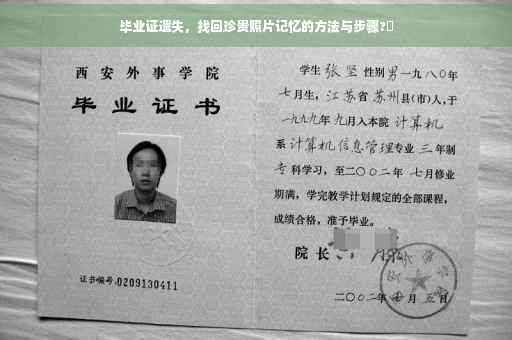 毕业证遗失，找回珍贵照片记忆的方法与步骤?
西安外事学院
毕业证书
证书编号:0209130411
学生 张坚 性别 男 一九八〇年
七月生，江苏省 苏州县(市)人，于
一九九九年 九月入本院 计算机
系 计算机信息管理专业 三 年制
专 科学习，至二〇〇二年 七月修业
期满，学完教学计划规定的全部课程，
成绩合格，准予毕业。
院长
二〇〇二年 月 五日